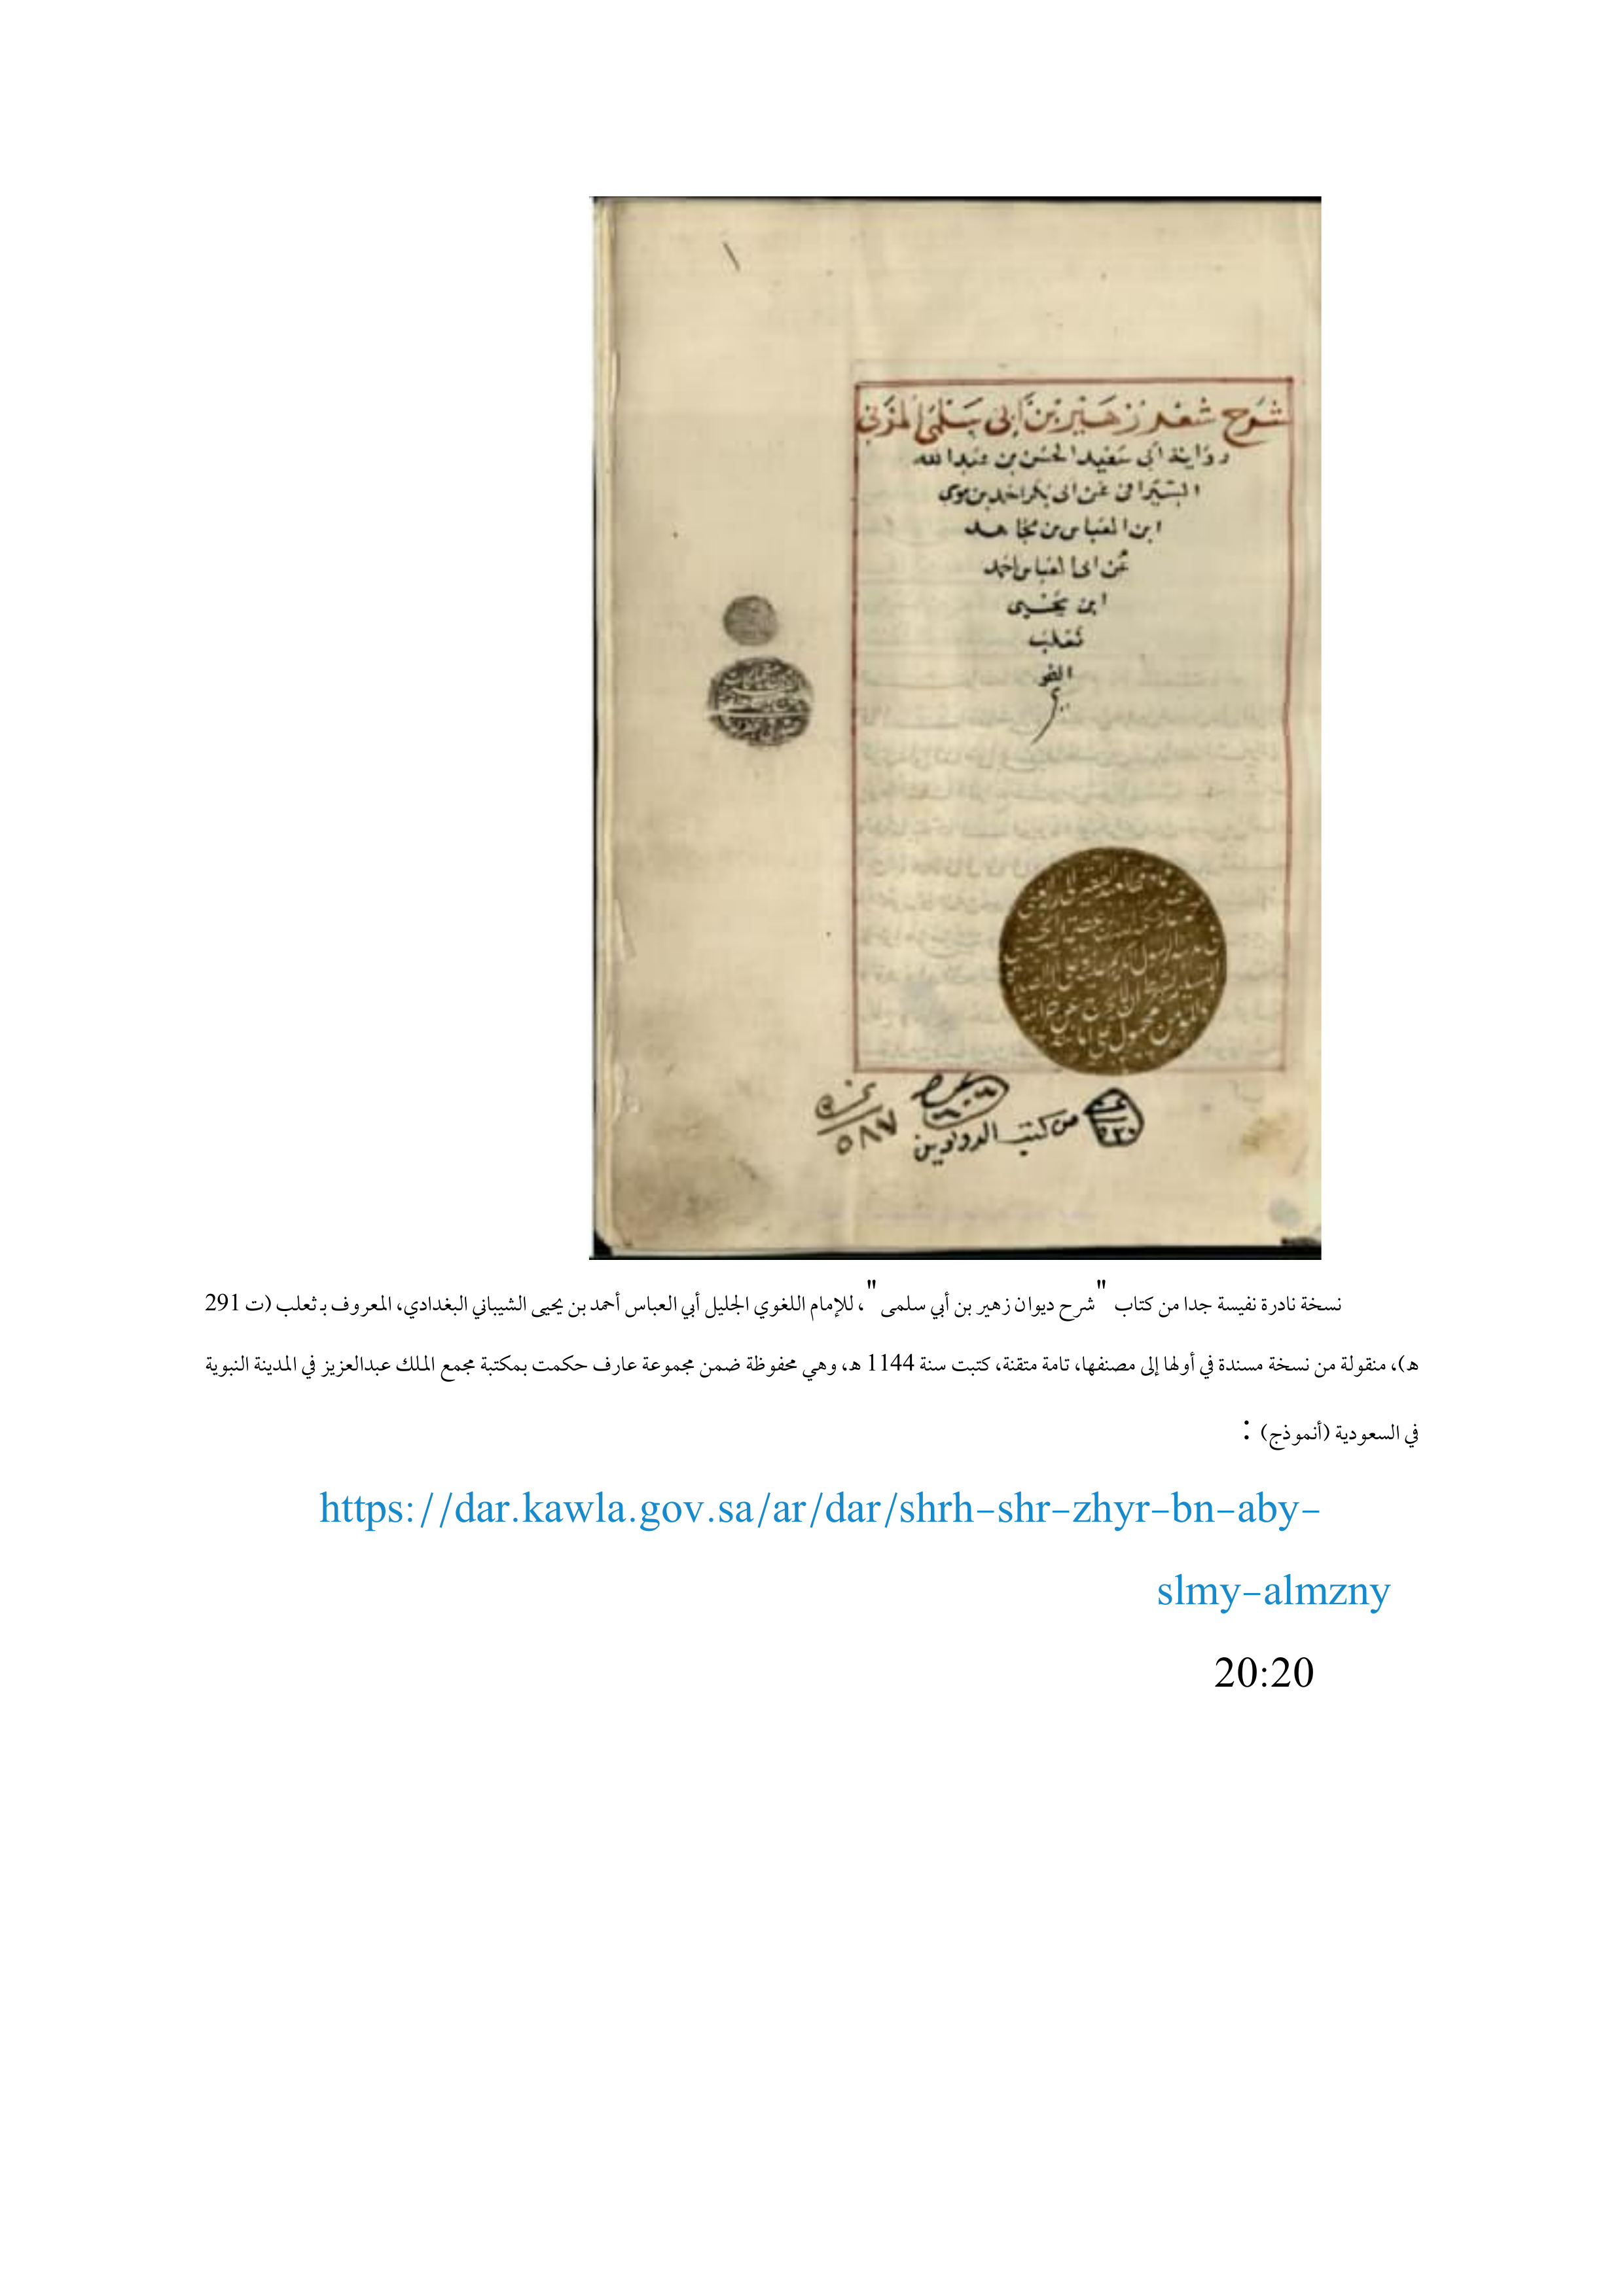 ١
شرح شعر زهير بن أبى سلمى المزنى
رواية أبى سعيد الحسن بن عبدا لله
السيرافى عن ابى بكر احمد بن موسى
ابن العباس بن مجاهد
عن ابى العباس احمد
ابن يحيى
ثعلب
النحو
ى
من كتب الدواوين
٥٨٧
نسخة نادرة نفيسة جدا من كتاب "شرح ديوان زهير بن أبي سلمى"، للإمام اللغوي الجليل أبي العباس أحمد بن يحيى الشيباني البغدادي، المعروف بـ ثعلب (ت 291
هـ)، منقولة من نسخة مسندة في أولها إلى مصنفها، تامة متقنة، كتبت سنة 1144 هـ، وهي محفوظة ضمن مجموعة عارف حكمت بمكتبة مجمع الملك عبدالعزيز في المدينة النبوية
في السعودية (أنموذج) :
https://dar.kawla.gov.sa/ar/dar/shrh-shr-zhyr-bn-aby-
slmy-almzny
20:20